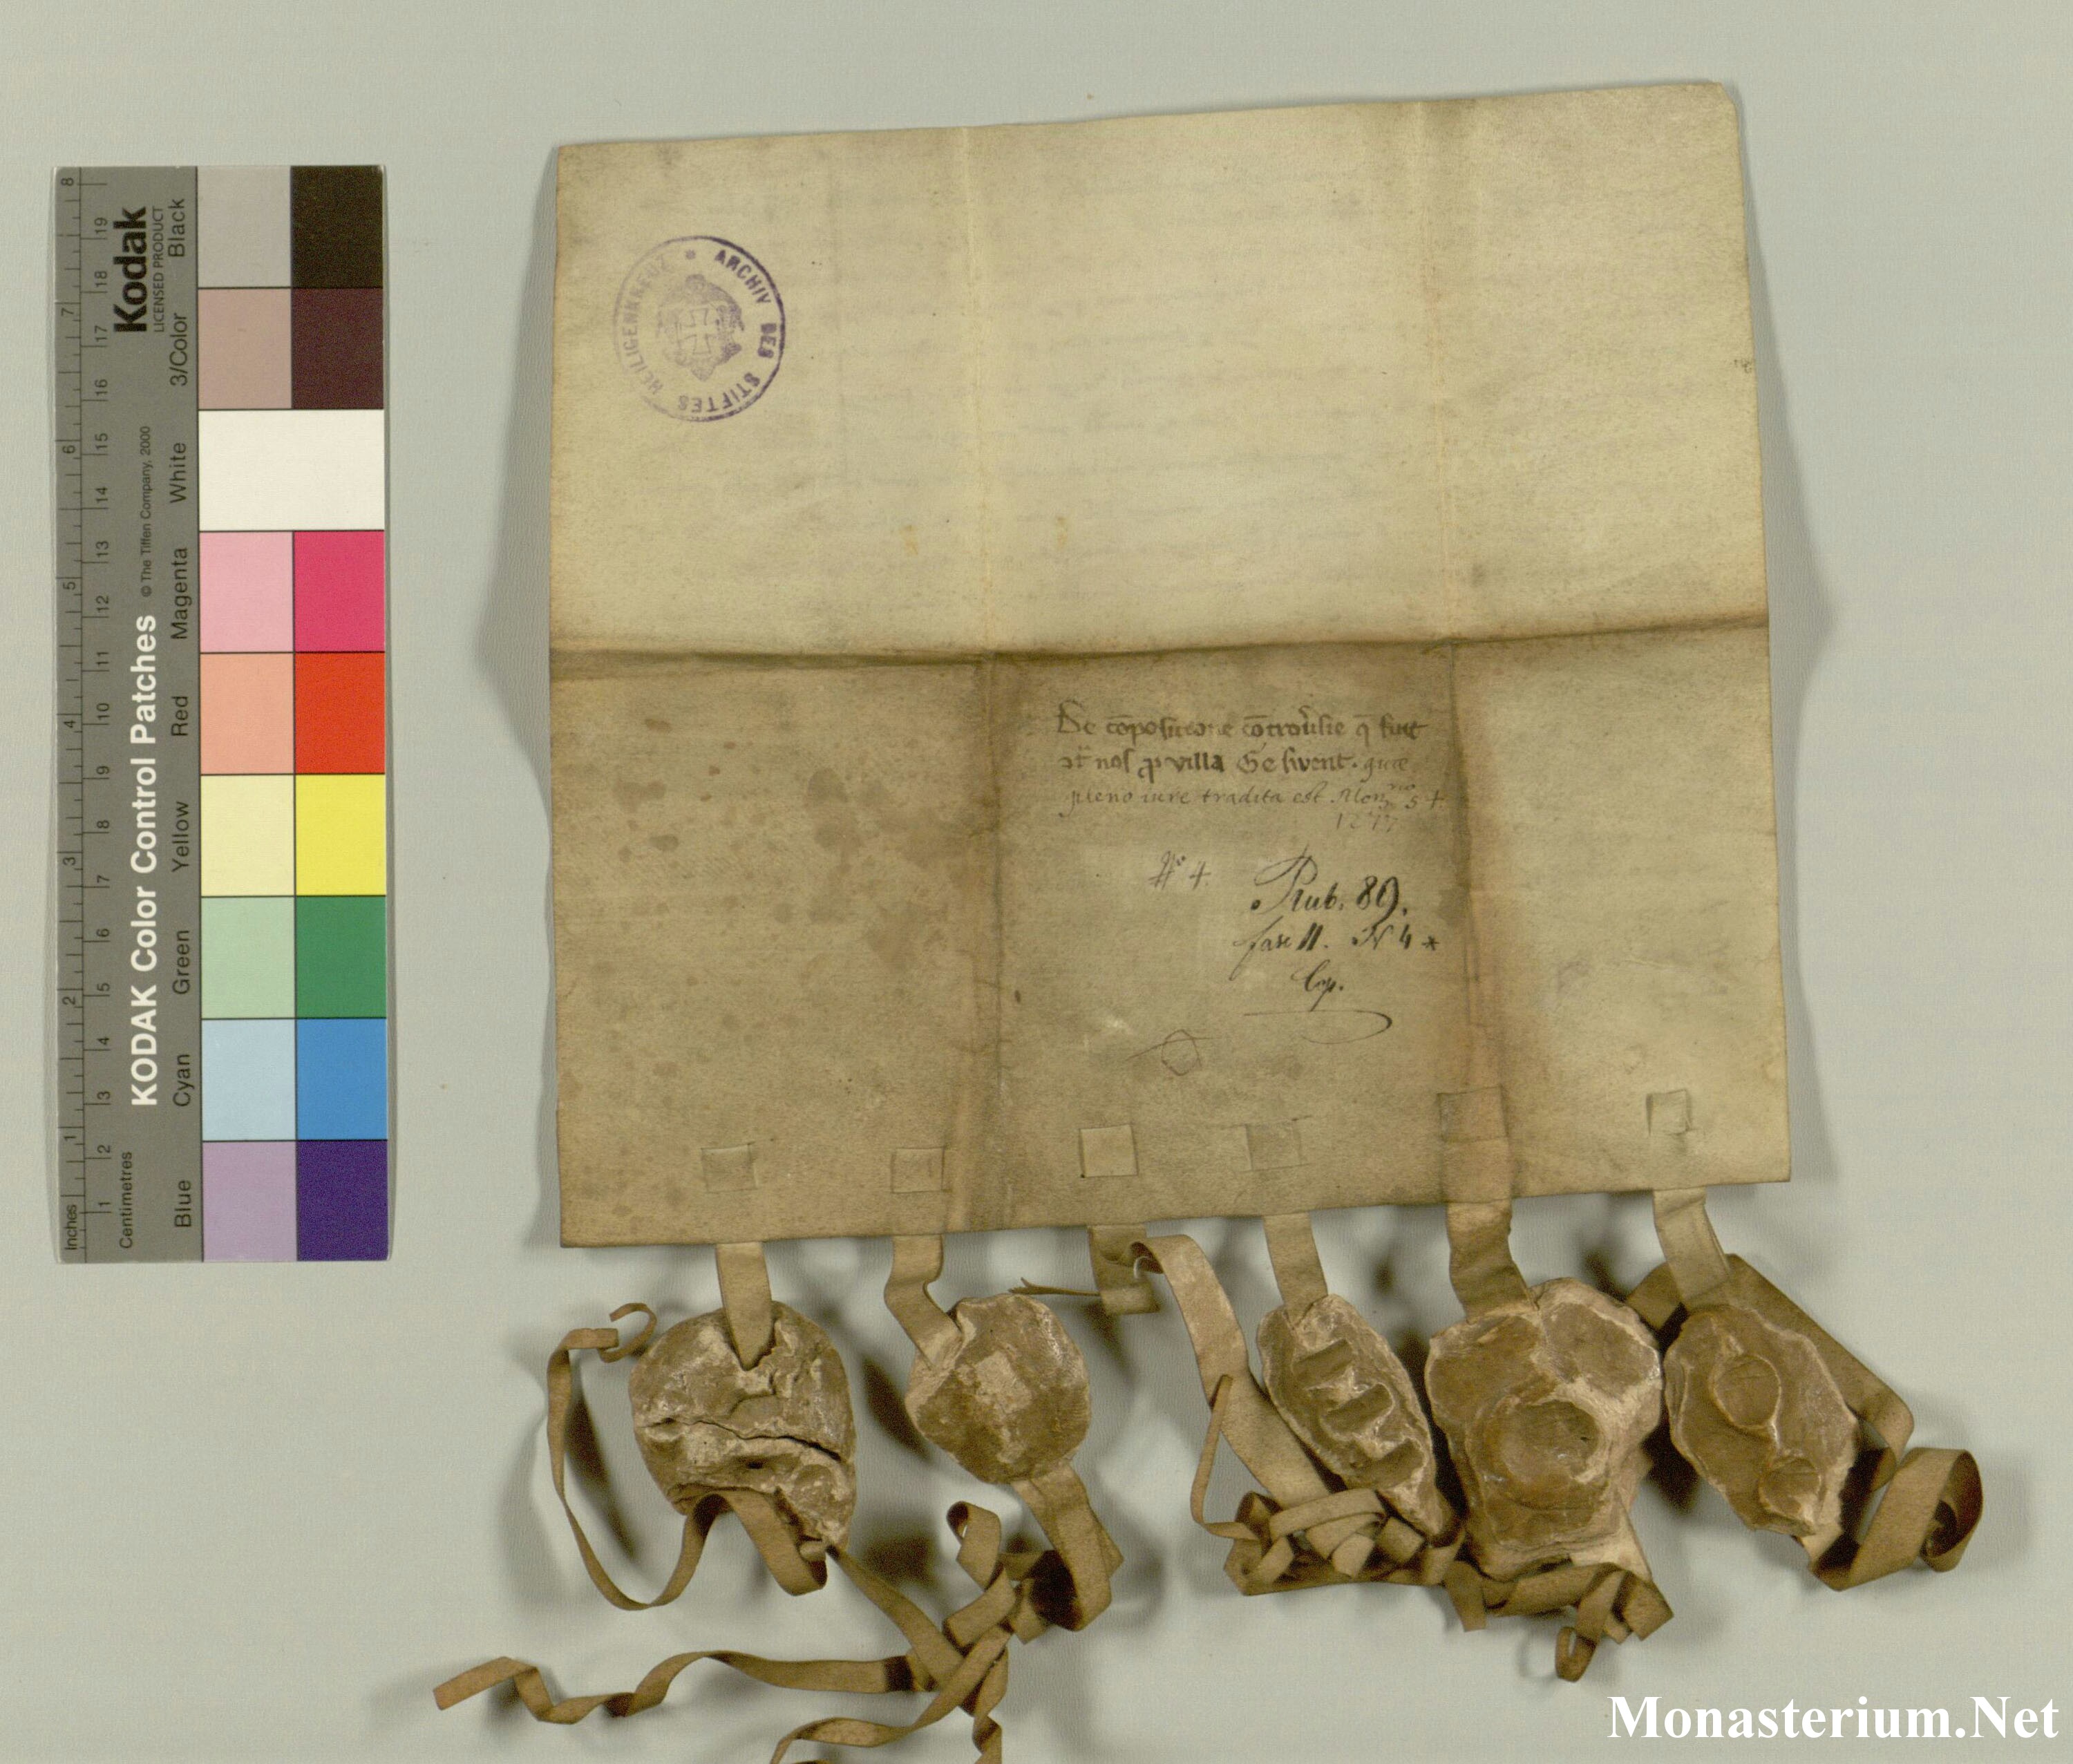 ARCHIV DES STIFTES HEILIGENKREUZ *
De cōpositione cōtrov̄sie q̄ fuit
nos villa Gesivent. quae
pleno iure tradita est Mon
N° 4.
Rub. 89.
fasc II. N 4 *
Cop.
KODAK Color Control Patches
© The Tiffen Company, 2000
Kodak
LICENSED PRODUCT
Inches 1 2 3 4 5 6 7 8
Centimetres 1 2 3 4 5 6 7 8 9 10 11 12 13 14 15 16 17 18 19
Blue Cyan Green Yellow Red Magenta White 3/Color Black
Monasterium.Net